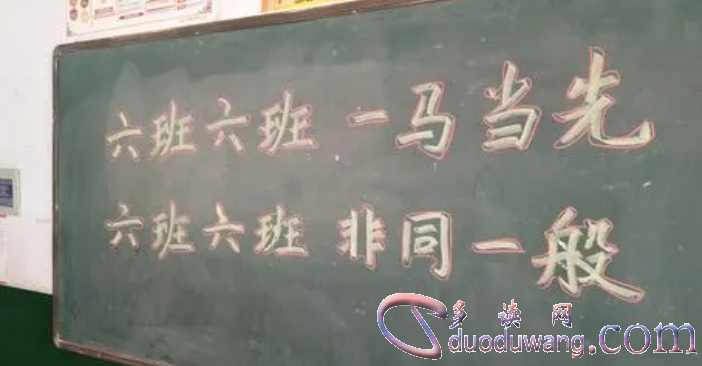 六班六班 一马当先
六班六班 非同一般
多读网
duoduwang.com